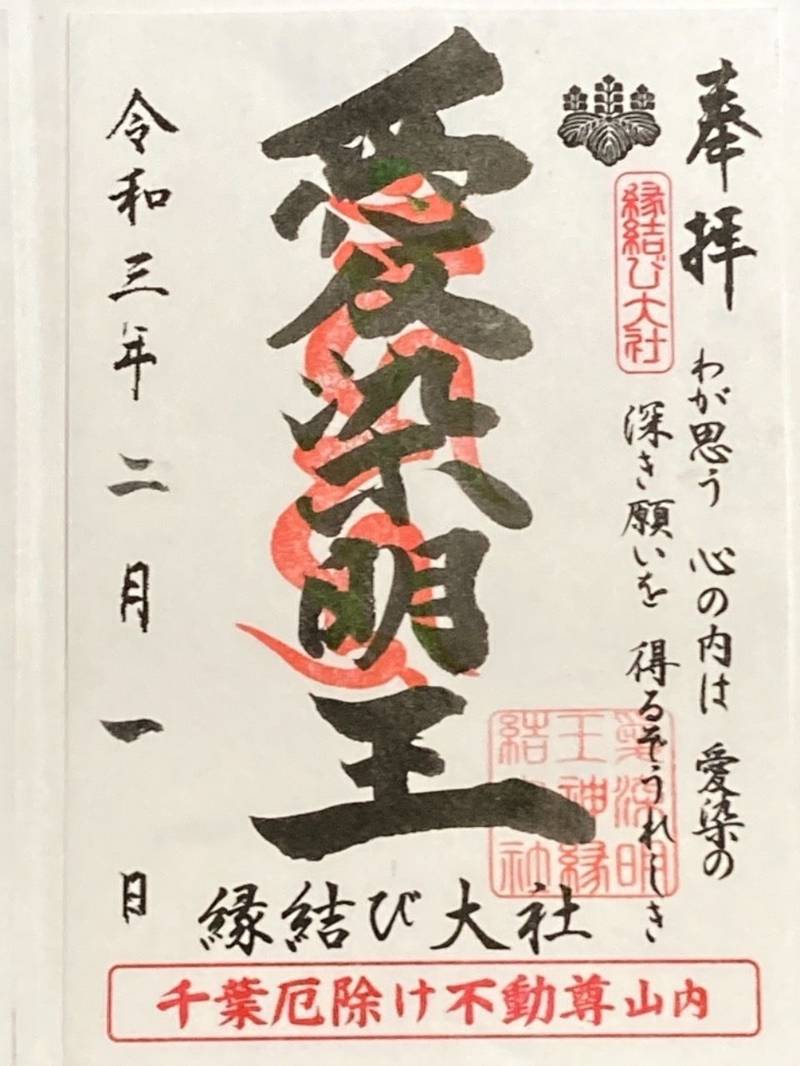 奉拝
縁結び大社
わが思う 心の内は 愛染の
深き願いを 得るぞうれしき
愛染明王
愛染明
王神縁
結
縁結び大社
令和三年二月一日
千葉厄除け不動尊山内